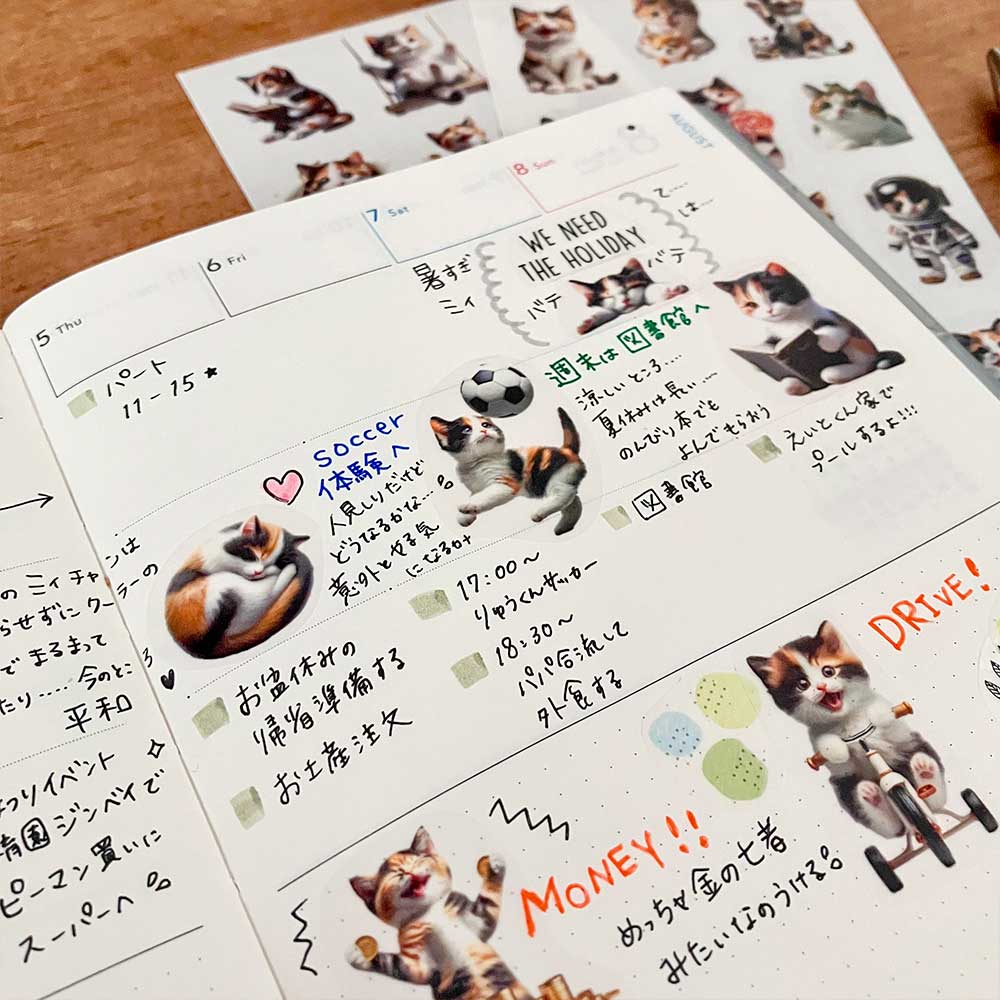 AUGUST
5 Thu
6 Fri
7 Sat
8 Sun
パート
11-15★
soccer
体験へ
人見しりだけど
どうなるかな…
意外とやる気
になるか+
お盆休みの
帰省準備する
お土産注文
17:00〜
りゅうくんサッカー
18:30〜
パパ合流して
外食する
暑すぎて……
ミィは…
WE NEED
THE HOLIDAY
バテ バテ
週末は図書館へ
涼しいところ……
夏休みは長い…〜
のんびり本でも
よんでもらおう
図書館
えいとくん家で
プールするよ!!!
のミィチャンは
らせずにクーラーの
でまるまって
たり……今のところ
平和
つりイベント
育園ジンベイで
ピーマン買いに
スーパーへ
DRIVE!
MONEY!!
めっちゃ金の七者
みたいなのうける